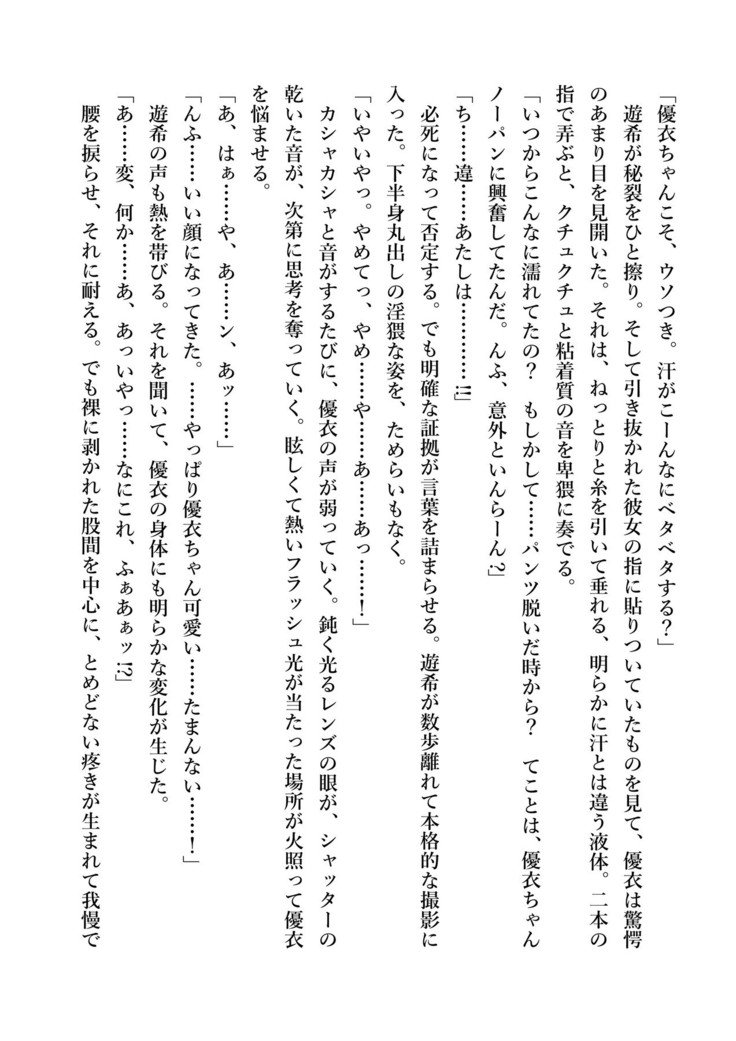 「優衣ちゃんこそ、ウソつき。汗がこーんなにベタベタする？」
　遊希が秘裂をひと擦り。そして引き抜かれた彼女の指に貼りついていたものを見て、優衣は驚愕
のあまり目を見開いた。それは、ねっとりと糸を引いて垂れる、明らかに汗とは違う液体。二本の
指で弄ぶと、クチュクチュと粘着質の音を卑猥に奏でる。
「いつからこんなに濡れてたの？　もしかして……パンツ脱いだ時から？　てことは、優衣ちゃん
ノーパンに興奮してたんだ。んふ、意外といんらーん？」
「ち……違……あたしは…………!!」
　必死になって否定する。でも明確な証拠が言葉を詰まらせる。遊希が数歩離れて本格的な撮影に
入った。下半身丸出しの淫猥な姿を、ためらいもなく。
「いやいやっ。やめてっ、やめ……や……あ……あっ……！」
　カシャカシャと音がするたびに、優衣の声が弱っていく。鈍く光るレンズの眼が、シャッターの
乾いた音が、次第に思考を奪っていく。眩しくて熱いフラッシュ光が当たった場所が火照って優衣
を悩ませる。
「あ、はぁ……や、あ……ン、あッ……」
「んふ……いい顔になってきた。……やっぱり優衣ちゃん可愛い……たまんない……！」
　遊希の声も熱を帯びる。それを聞いて、優衣の身体にも明らかな変化が生じた。
「あ……変、何か……あ、あっいやっ……なにこれ、ふぁあぁッ!?」
　腰を捩らせ、それに耐える。でも裸に剥かれた股間を中心に、とめどない疼きが生まれて我慢で